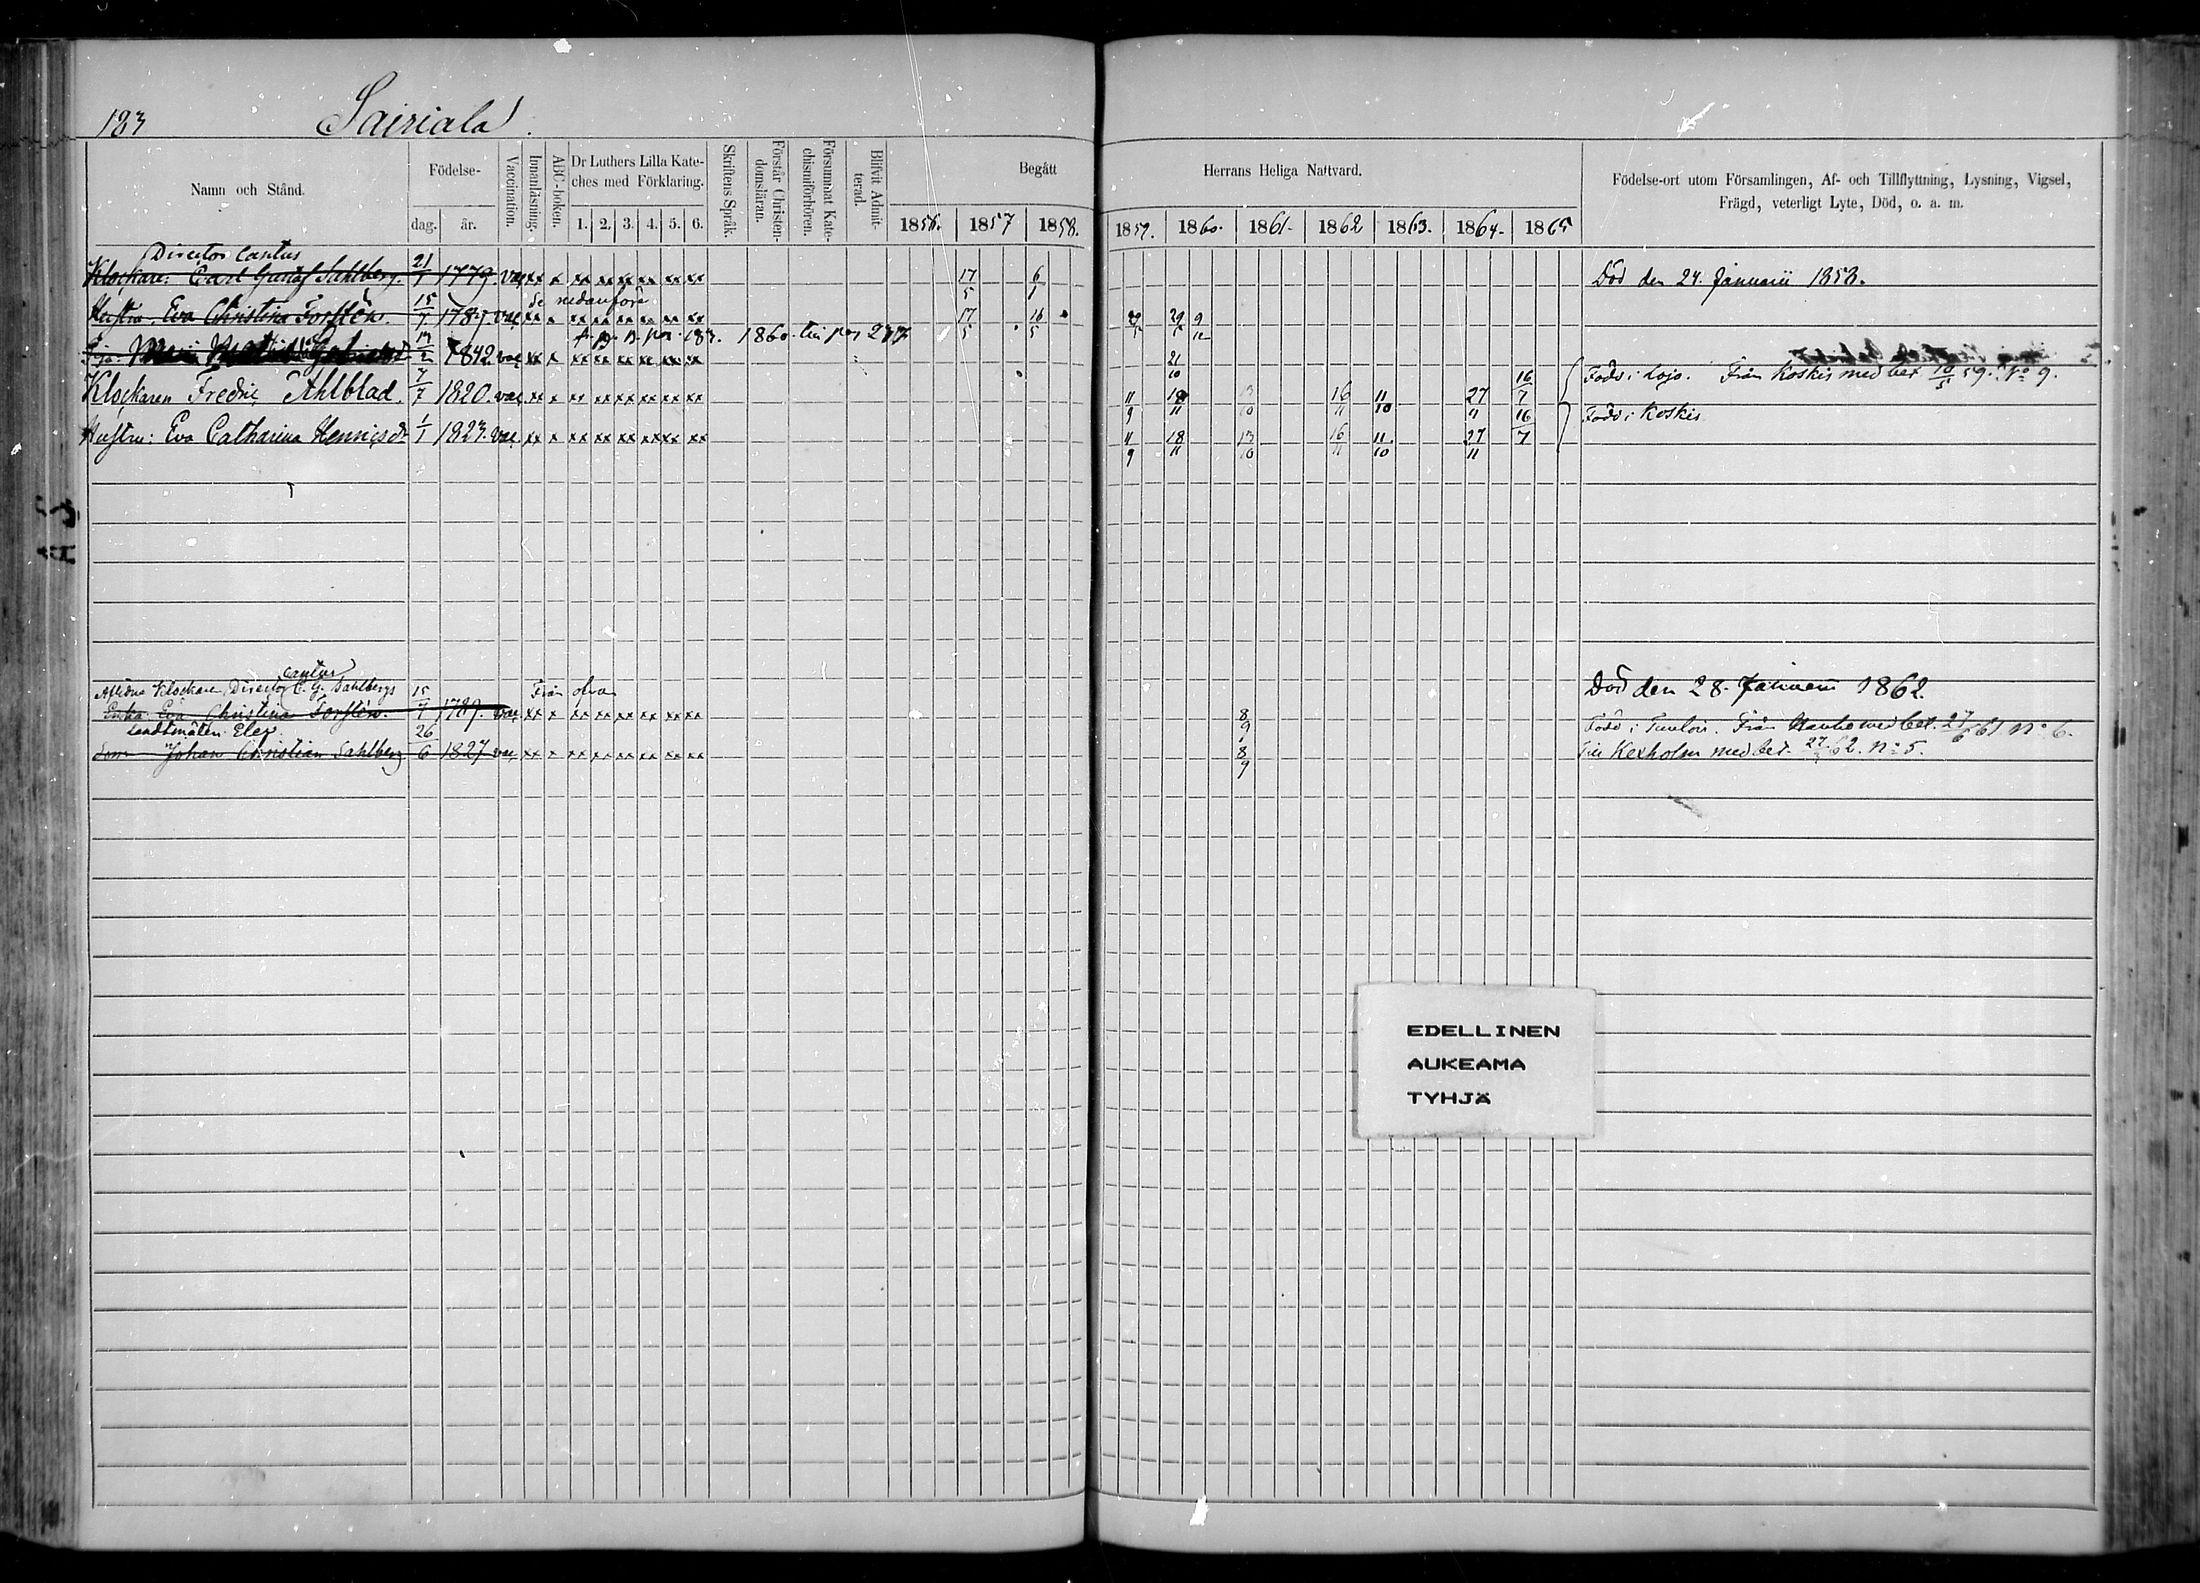 183 Sairiala
Namn och Stånd.
Födelse-
dag. år.
Vaccination.
Innanläsning.
ABC-boken.
Dr Luthers Lilla Kate-
ches med Förklaring.
1. 2. 3. 4. 5. 6.
Skriftens Språk.
Förstår Christen-
domsläran.
Försummat Kate-
chismiförhören.
Blifvit Admit-
terad.
Begått
Herrans Heliga Nattvard.
1856. 1857 1858. 1859. 1860. 1861. 1862 1863. 1864. 1865
Födelse-ort utom Församlingen, Af- och Tillflyttning, Lysning, Vigsel,
Frägd, veterligt Lyte, Död, o. a. m.
Director Cantus
Klockare: Carl Gustaf Sahlberg. 21/1 1779. vac xx x xx xx xx xx xx xx 17/5 6/1 Död den 24. Januarii 1858.
se nedanföre
Hustru. Eva Christina Forstén. 15/7 1789 vac xx x xx xx xx xx xx xx 17/5 16/5 29/5 29/5 9/12
1842 vac xx x xx xx xx xx xx xx 183. 1860. till pag 277
21/10
Klockaren Fredric Ahlblad. 7/7 1820. vac xx x xx xx xx xx xx xx 11/9 18/11 13/10 16/11 11/10 27/11 16/7 Född i Lojo. Från Koskis med bet 10/5 59. No 9.
Hustru: Eva Catharina Henricsdr 1/1 1823. vac xx x xx xx xx xx xx xx 11/9 18/11 13/10 16/11 11/10 27/11 16/7 Född i Koskis
cantus
Aflidne Klockaren, Director C. G. Sahlbergs
Från ofvan
Enka Eva Christina Forstén. 15/7 1789. vac. xx x xx xx xx xx xx xx 8/9 Död den 28. Januarii 1862.
Landtmäteri Elev.
Son Johan Christian Sahlberg 26/6 1827 vac xx x xx xx xx xx xx xx 8/9 Född i Tuulois. Från med bet. 27/6 61 No 6.
Till Kexholm med bet. 62. No 5.
EDELLINEN
AUKEAMA
TYHJÄ